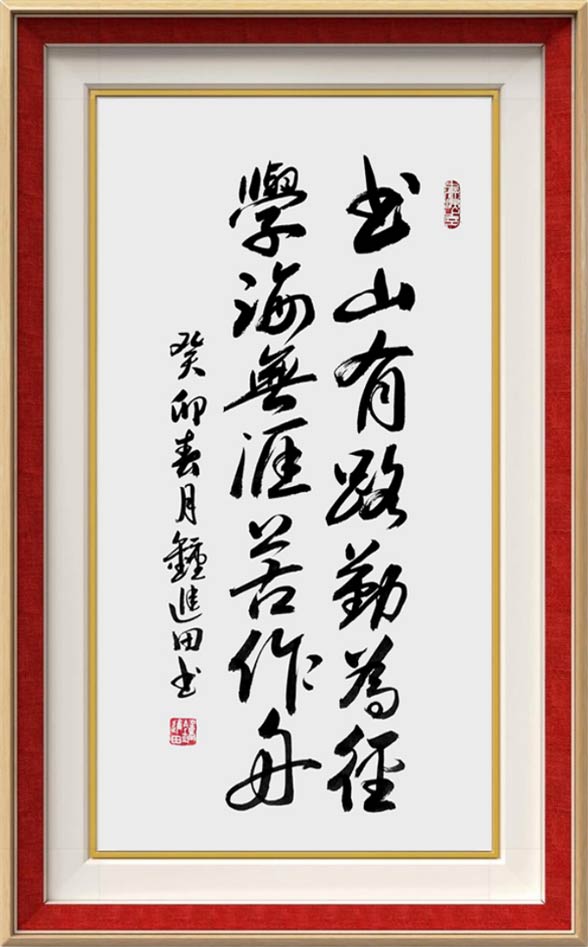 书山有路勤为徑
學海無涯苦作舟
癸卯春月鍾進田书